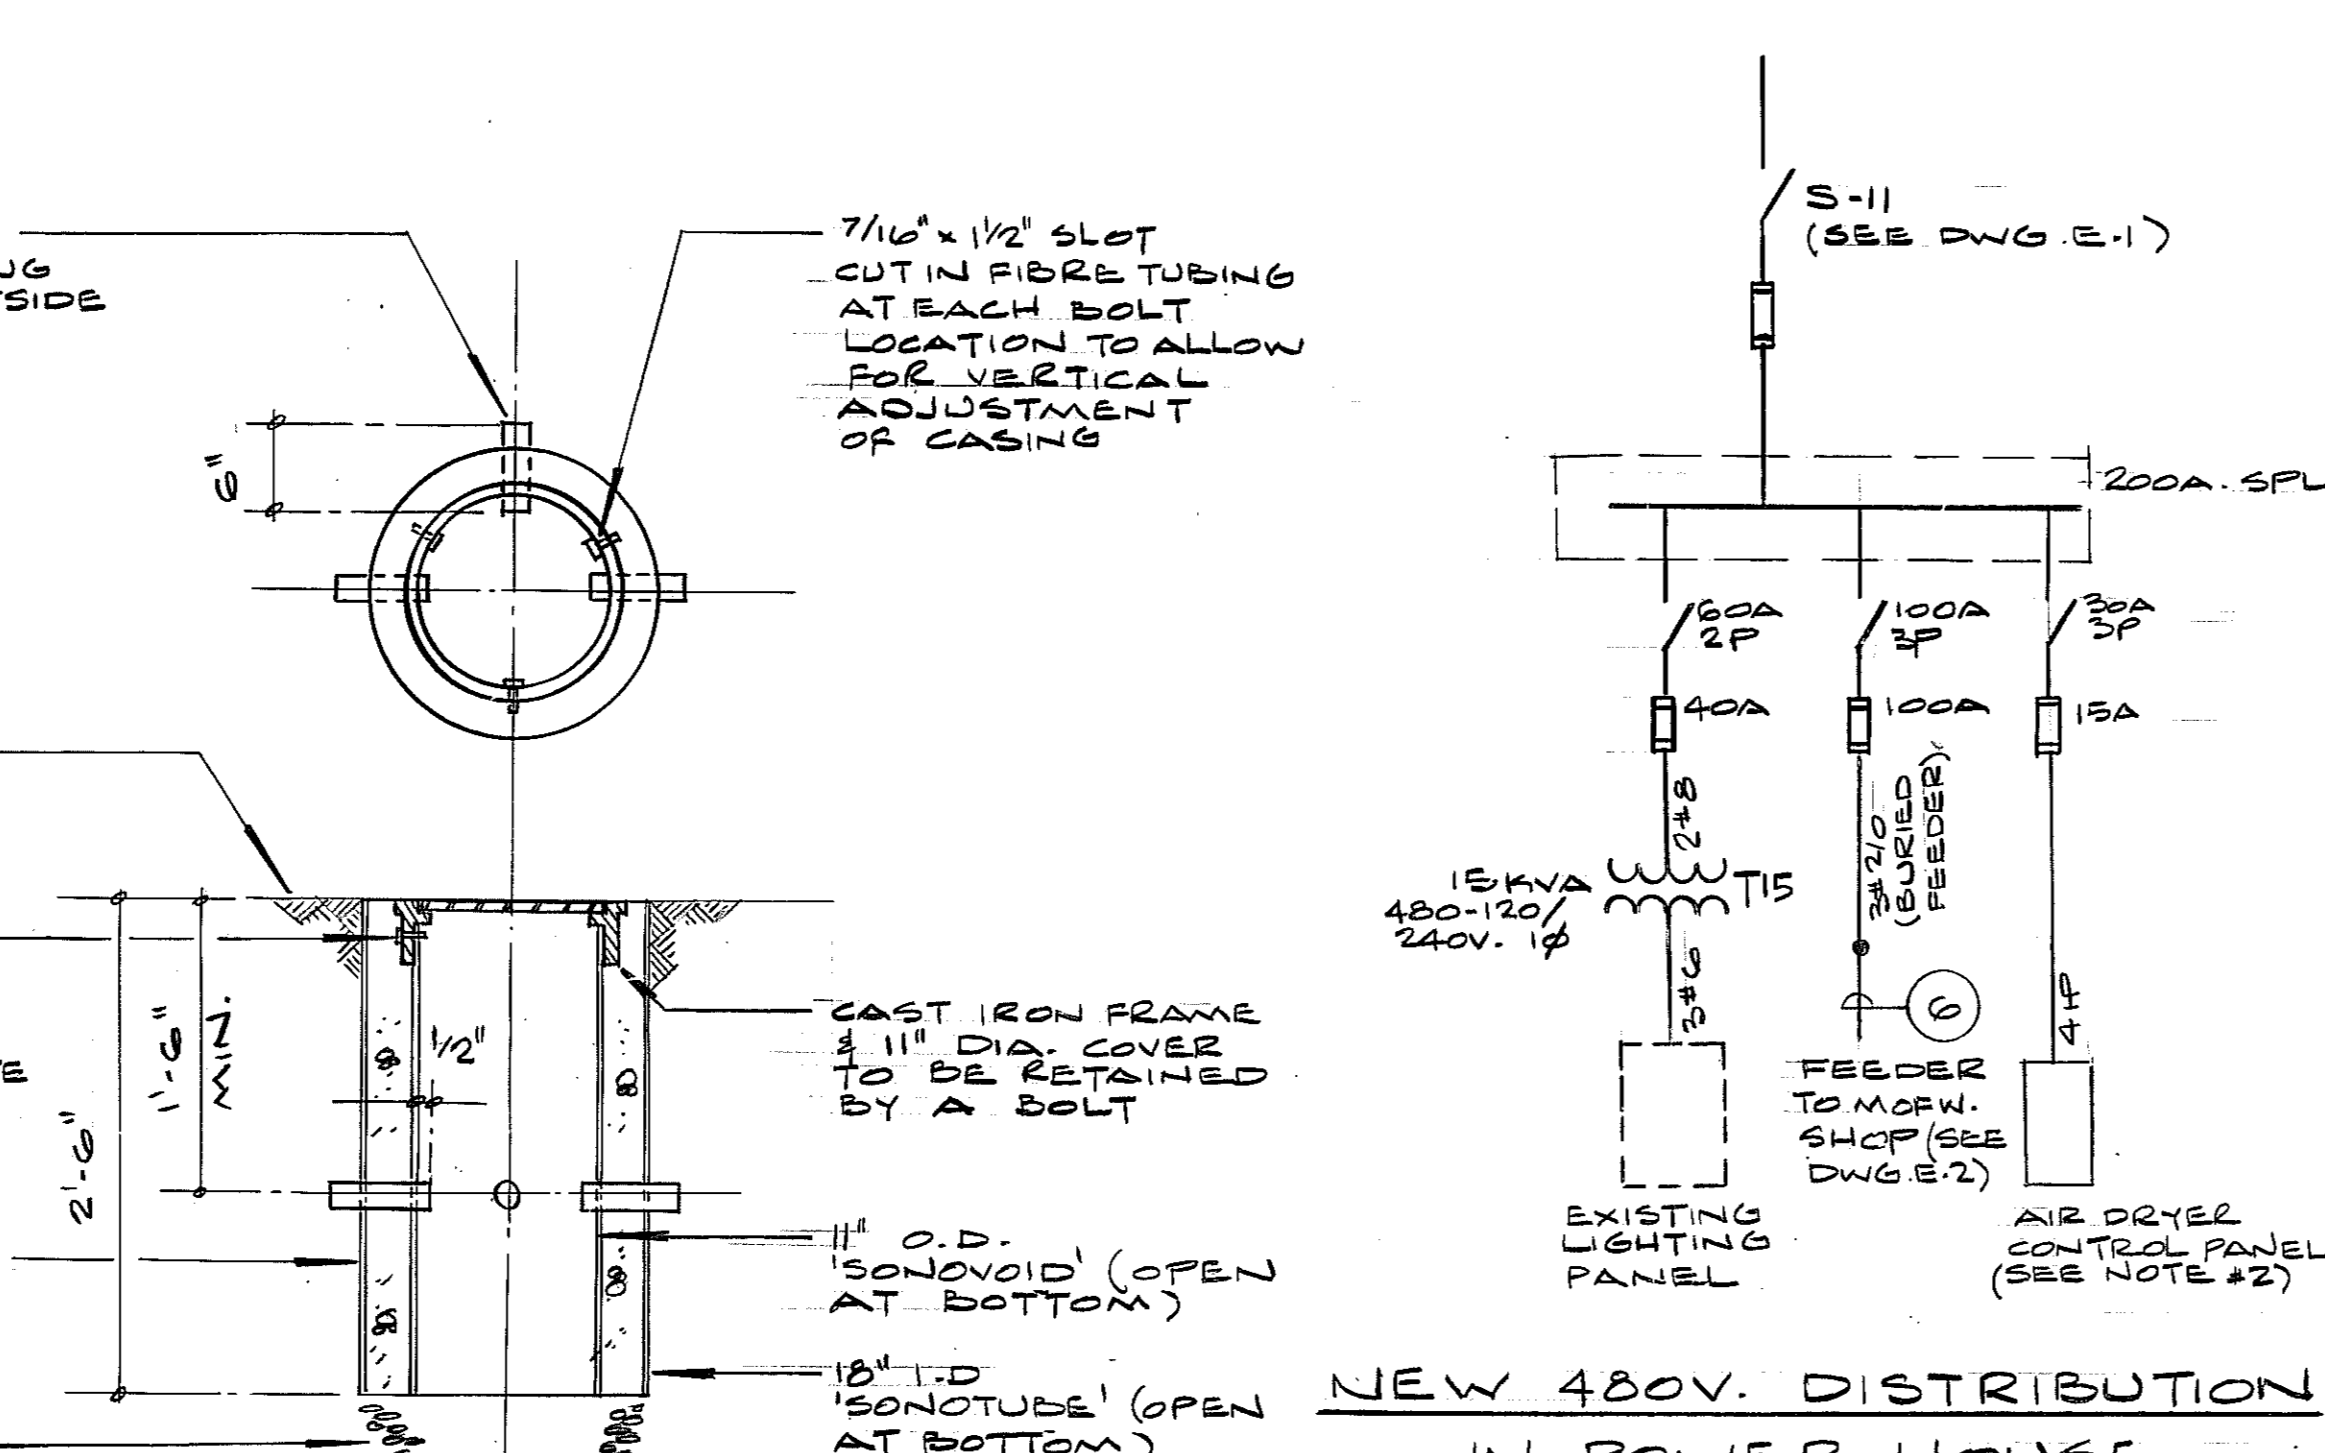 SIDE
7/16" x 1 1/2" SLOT
CUT IN FIBRE TUBING
AT EACH BOLT
LOCATION TO ALLOW
FOR VERTICAL
ADJUSTMENT
OF CASING
6"
1/2"
1'-6"
MIN.
2'-6"
CAST IRON FRAME
& 11" DIA. COVER
TO BE RETAINED
BY A BOLT
11" O.D.
'SONOVOID' (OPEN
AT BOTTOM)
18" I.D
'SONOTUBE' (OPEN
AT BOTTOM)
S-11
(SEE DWG.E.1)
200A. SPL
60A
2P
100A
3P
30A
3P
40A
100A
15A
2#8
3#2/0
(BURIED
FEEDER)
15KVA
480-120/
240V. 1ø
T15
3#6
6
FEEDER
TO MOFW.
SHOP (SEE
DWG.E.2)
EXISTING
LIGHTING
PANEL
AIR DRYER
CONTROL PANEL
(SEE NOTE #2)
NEW 480V. DISTRIBUTION
IN POWER HOUSE